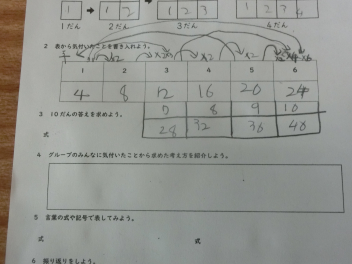 1 1 2 1 2 3 1 2 3 4
1だん 2だん 3だん 4だん
2 表から気付いたことを書き入れよう。
×2 ×2 ×2
1 2 3 4 5 6
4 8 12 16 20 24
3 10だんの答えを求めよう。
7 8 9 10
式 28 32 36 40
4 グループのみんなに気付いたことから求めた考え方を紹介しよう。
5 言葉の式や記号で表してみよう。
式 式
6 振り返りをしよう。